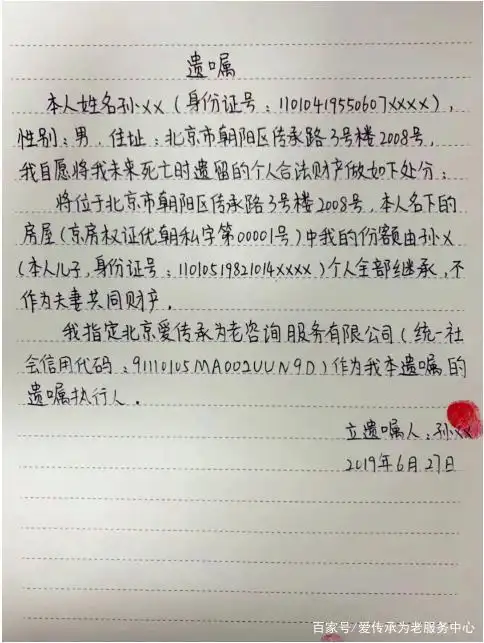 遗嘱
本人姓名孙XX（身份证号：11010419550607XXXX），
性别：男，住址：北京市朝阳区传承路3号楼2008号，
我自愿将我未来死亡时遗留的个人合法财产做如下处分：
将位于北京市朝阳区传承路3号楼2008号，本人名下的
房屋（京房权证优朝私字第00001号）中我的份额由孙X
（本人儿子，身份证号：11010519821014XXXX）个人全部继承，不
作为夫妻共同财产。
我指定北京爱传承为老咨询服务有限公司（统一社
会信用代码：91110105MA002UUN9D）作为我本遗嘱的
遗嘱执行人。
立遗嘱人：孙XX
2019年6月27日
百家号/爱传承为老服务中心